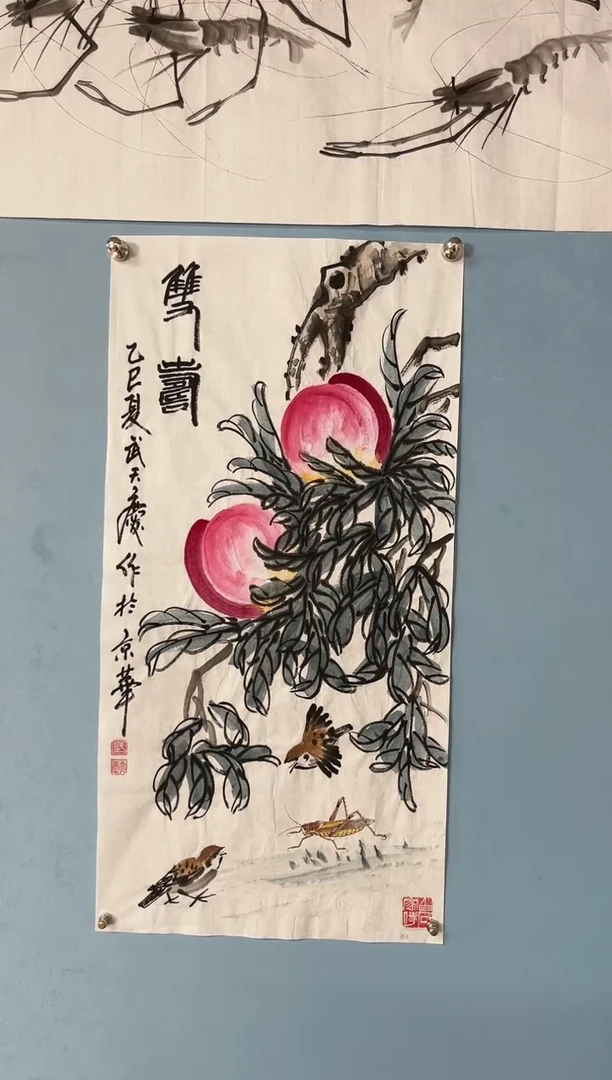 雙壽
乙巳夏武天慶作於京華